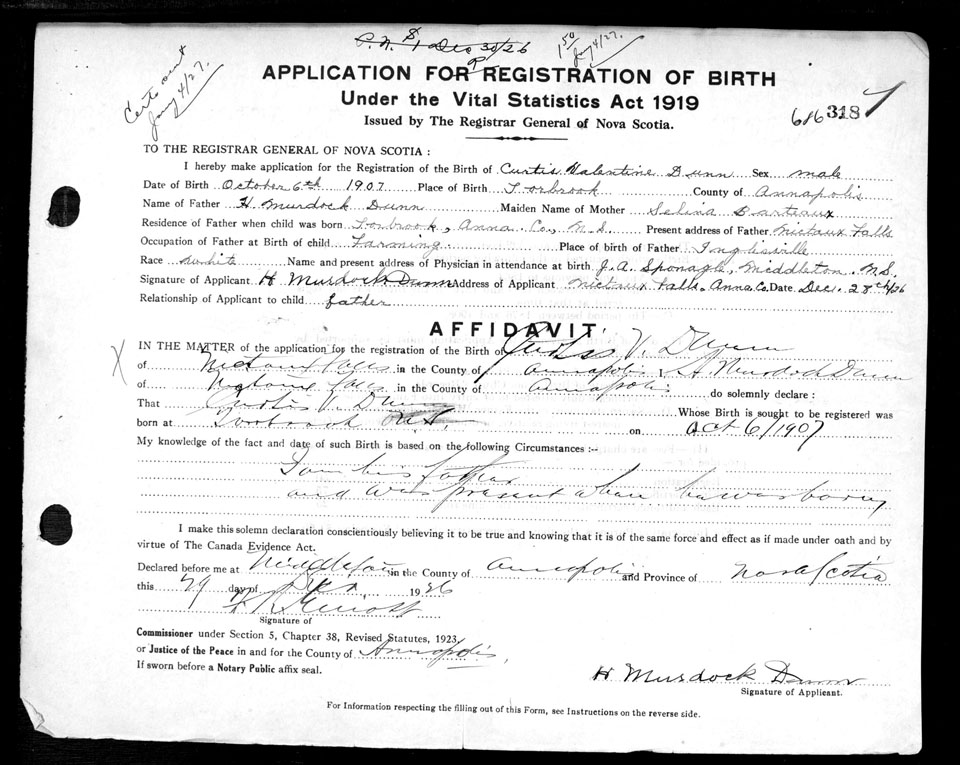 P.N. $1 Dec 30/26
1.50 Jany 4/27.
Certs sent
Jany 4/27.
APPLICATION FOR REGISTRATION OF BIRTH
Under the Vital Statistics Act 1919
Issued by The Registrar General of Nova Scotia.
616 318
TO THE REGISTRAR GENERAL OF NOVA SCOTIA :
I hereby make application for the Registration of the Birth of Curtis Valentine Dunn Sex male
Date of Birth October 6th 1907 Place of Birth Torbrook County of Annapolis
Name of Father H. Murdock Dunn Maiden Name of Mother Selina Barteaux
Residence of Father when child was born Torbrook, Anna. Co., N.S. Present address of Father Nictaux Falls
Occupation of Father at Birth of child Farming Place of birth of Father Inglisville
Race white Name and present address of Physician in attendance at birth J. A. Sponagle, Middleton. N.S.
Signature of Applicant H Murdock Dunn Address of Applicant Nictaux Falls. Anna Co. Date Dec. 28th/26
Relationship of Applicant to child father
AFFIDAVIT
IN THE MATTER of the application for the registration of the Birth of Curtiss V. Dunn
X
of Nictaux Falls in the County of Annapolis I, H Murdock Dunn
of Nictaux Falls in the County of Annapolis do solemnly declare :
That Curtis V. Dunn Whose Birth is sought to be registered was
born at Torbrook N.S. on Oct 6/1907
My knowledge of the fact and date of such Birth is based on the following Circumstances :--
I am his father
and was present when he was born
I make this solemn declaration conscientiously believing it to be true and knowing that it is of the same force and effect as if made under oath and by
virtue of The Canada Evidence Act.
Declared before me at Middleton in the County of Annapolis and Province of Nova Scotia
this 29 day of Dec. 1926
Signature of
Commissioner under Section 5, Chapter 38, Revised Statutes, 1923.
or Justice of the Peace in and for the County of Annapolis,
If sworn before a Notary Public affix seal.
H Murdock Dunn
Signature of Applicant.
For Information respecting the filling out of this Form, see Instructions on the reverse side.